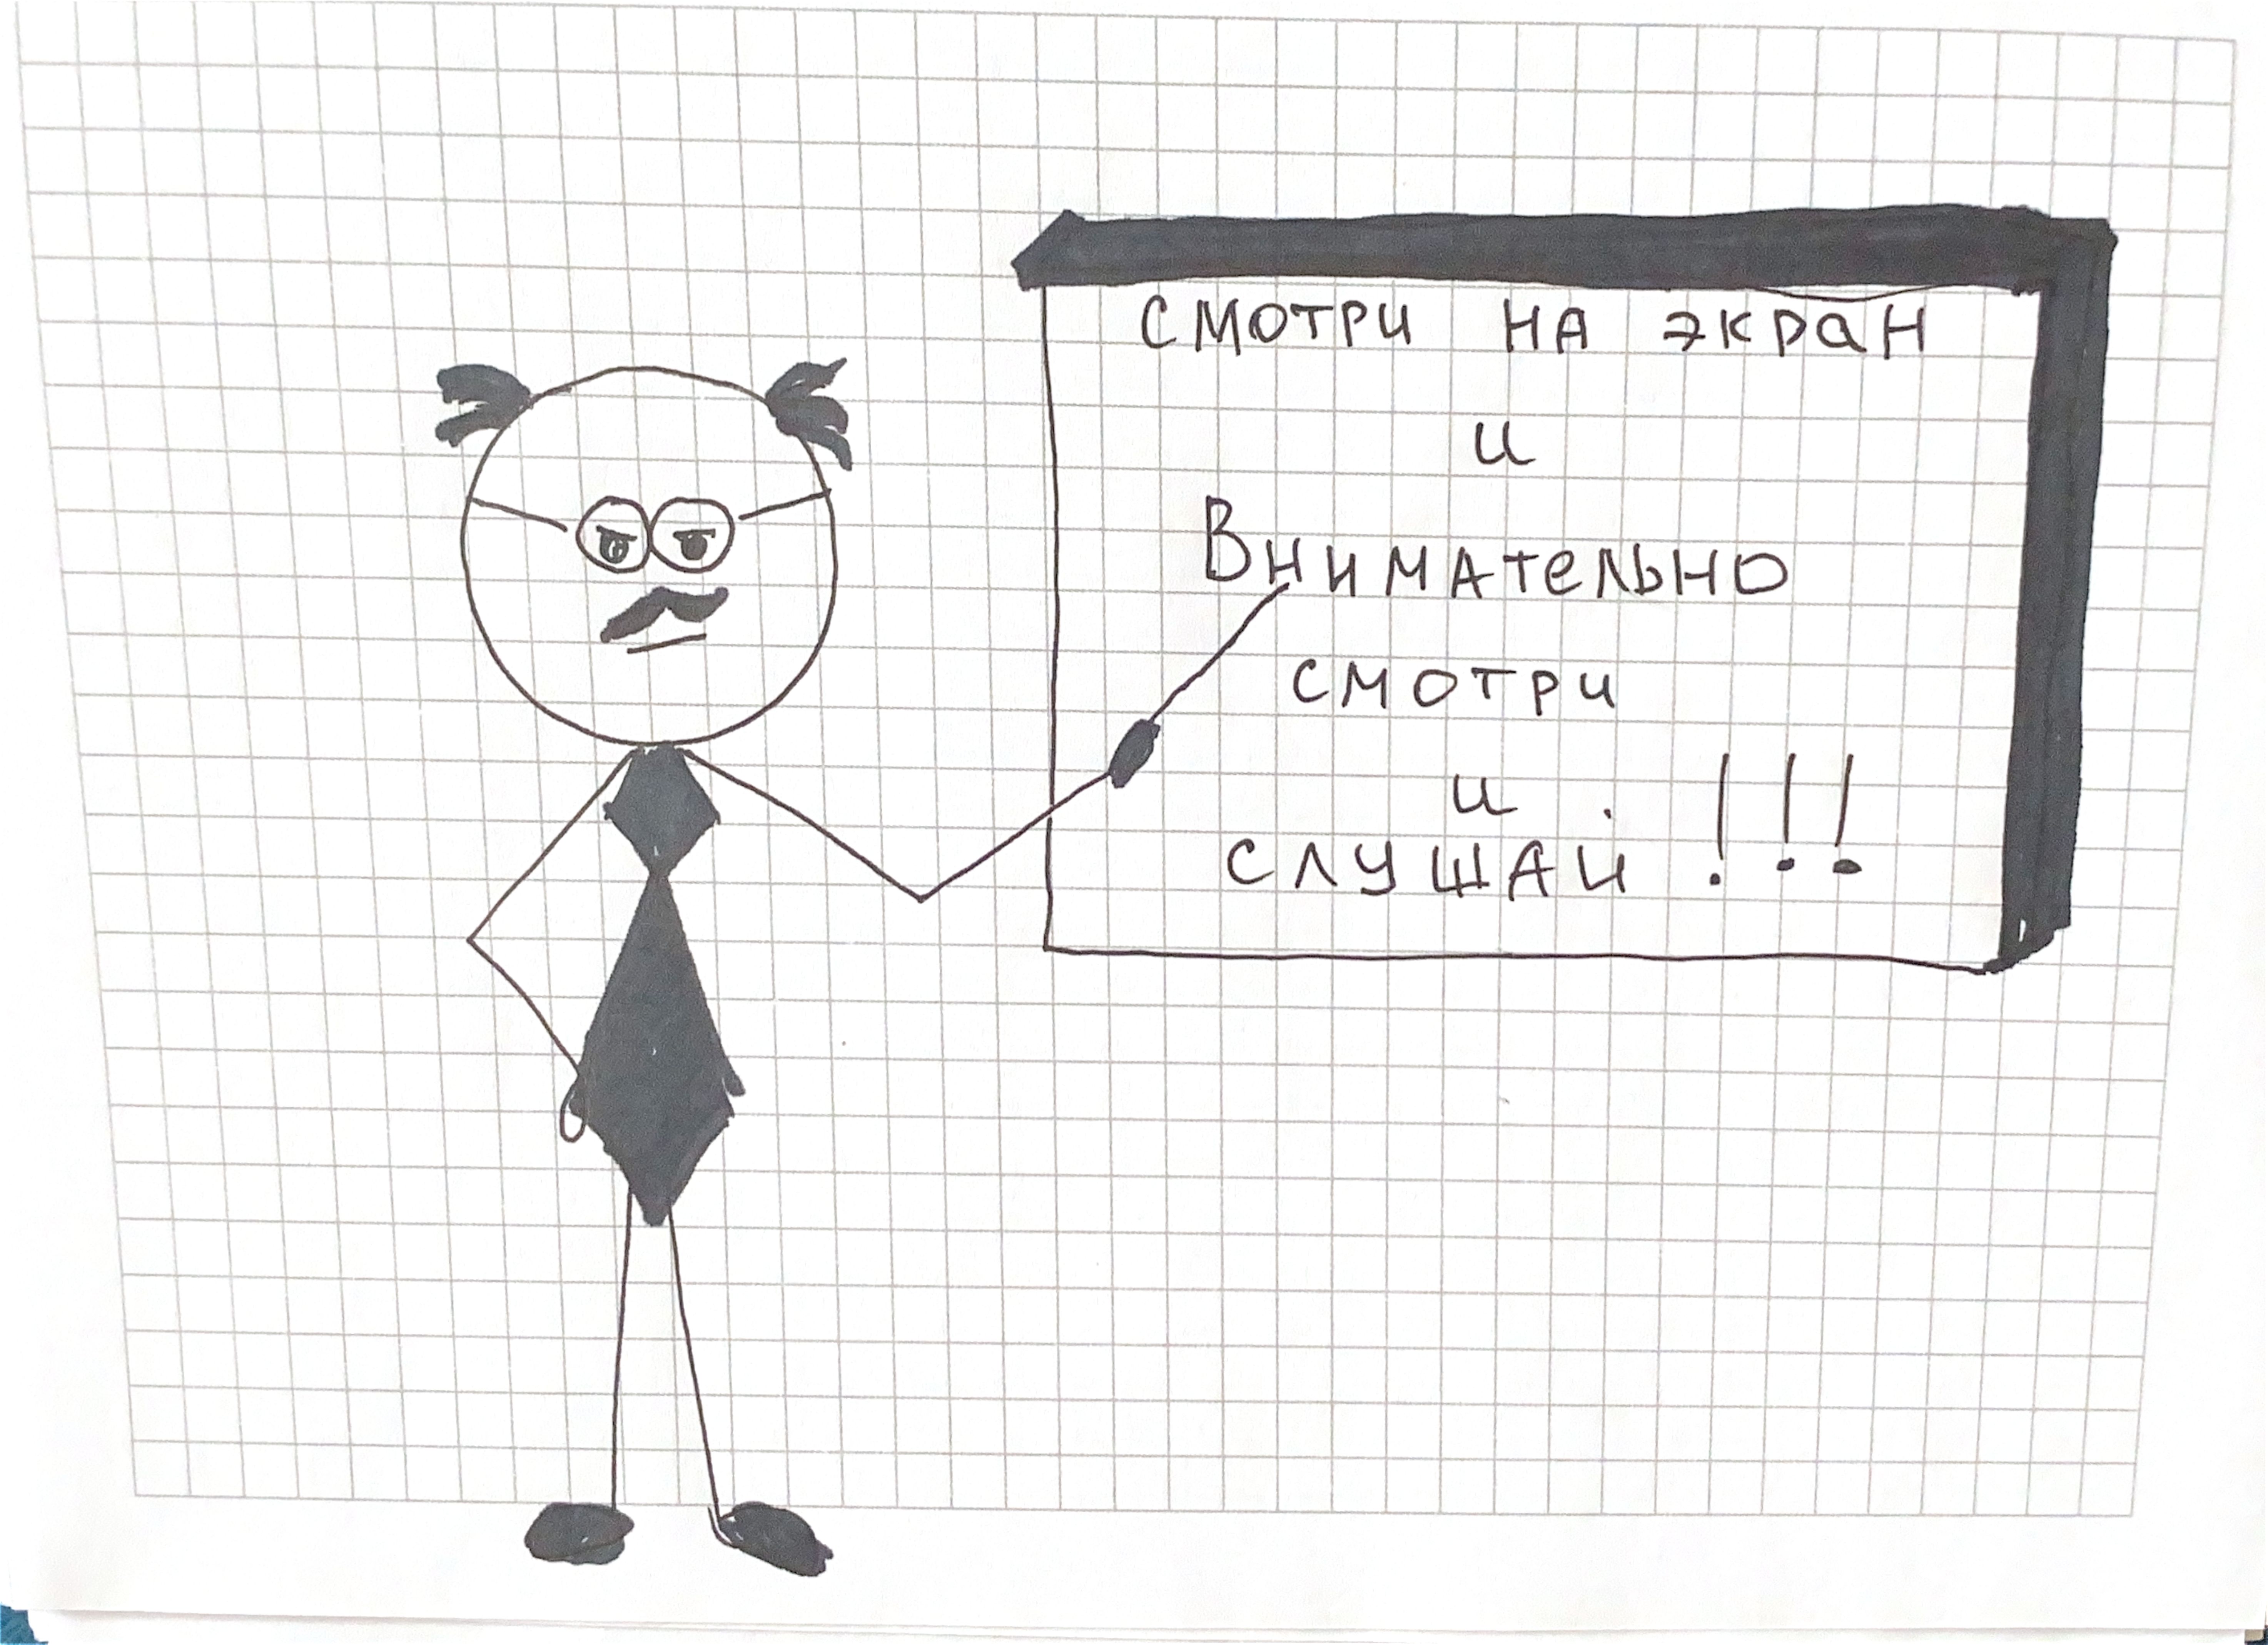 СМОТРИ НА ЭКРАН
и
Внимательно
смотри
и
СЛУШАЙ !!!